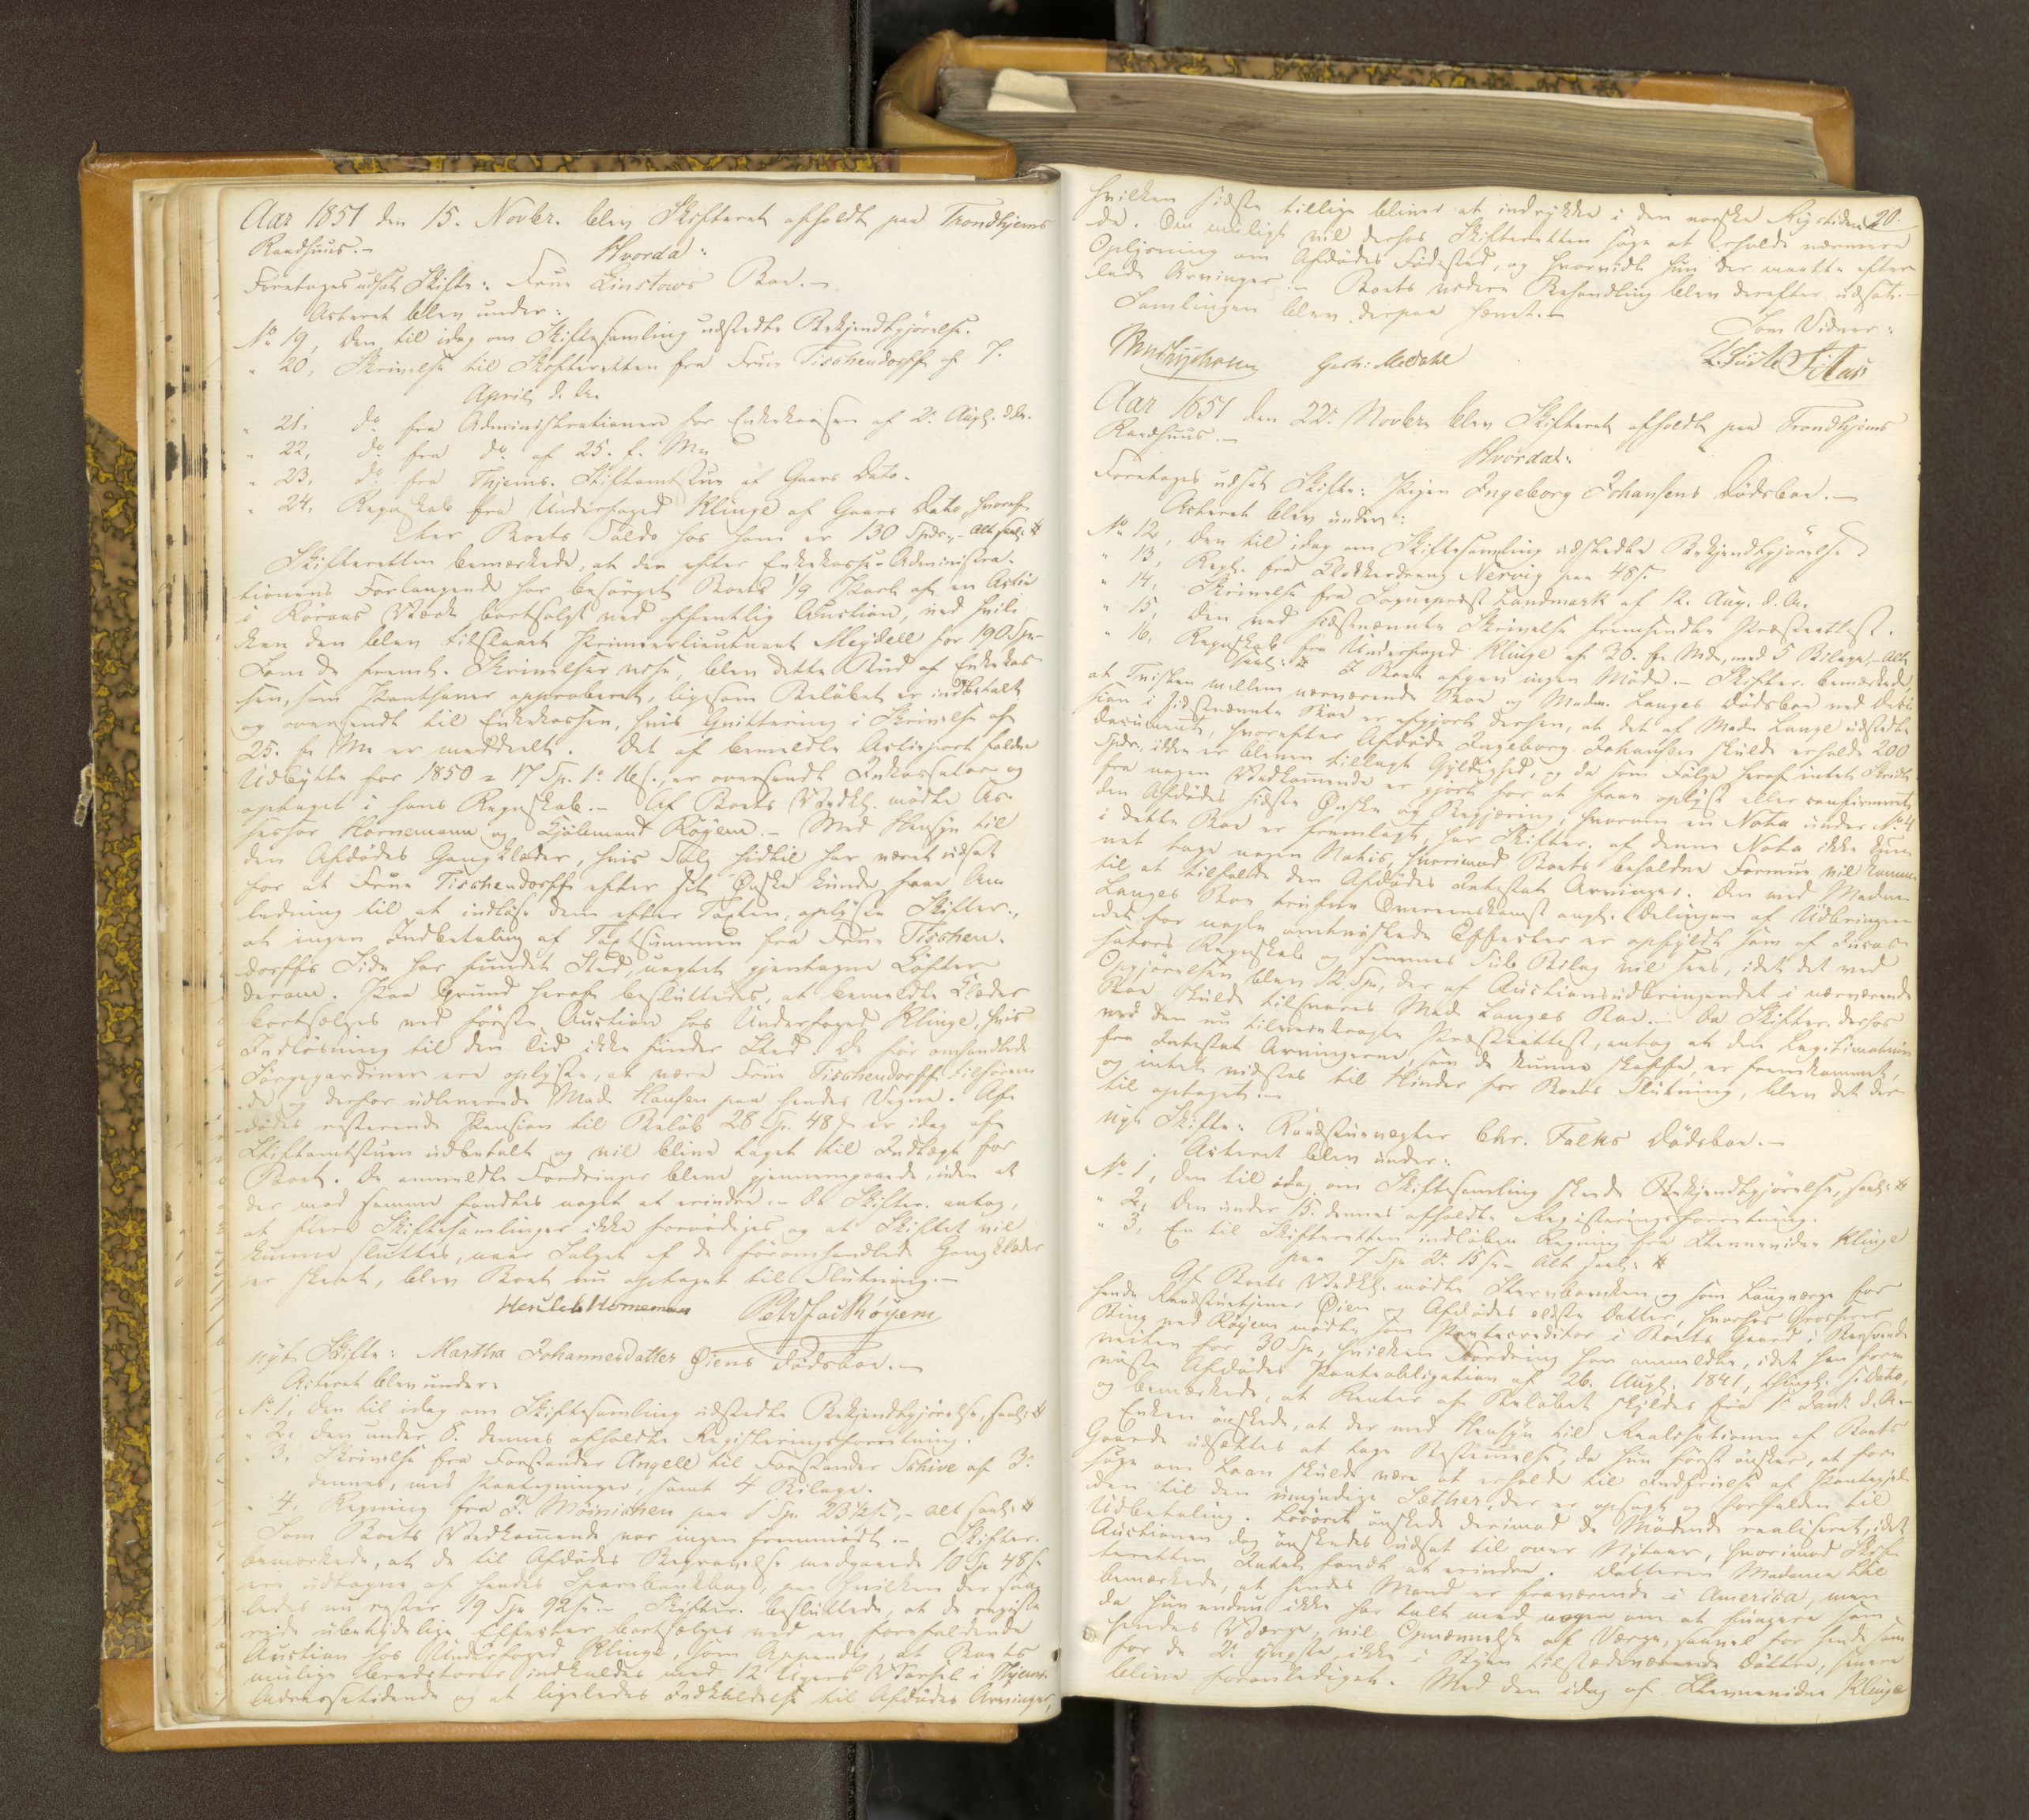 Aar 1851 den 15. Novbr. blev Skifteret afholdt paa Trondhjems
Raadhuus.-
Hvorda:
Foretages udsat Skifte: Frue Linstows Boe.-
Acteret blev under:
No 19, den til idag om Skiftesamling udstedte Bekjendtgjörelse.
" 20, Skrivelse til Skifteretten fra Frue Tischendorff af 7.
April d. A.
" 21. do fra Administrationen for Enkekassen af 2. Augt. d. A.
" 22, do fra do af 25. f. M.
" 23, do fra Thjems. Stiftamtstue af Gaars Dato.
" 24, Regnskab fra Underfoged Klinge af Gaars Dato, hvoref-
ter Boets Saldo hos ham er 130 Spdr.- Alt saal:
Skifteretten bemærkede, at den efter Enkekasse-Administra-
tionens Forlangende har besörget Boets 1/9 Part af en Actie
i Röraas Værk bortsolgt ved offentlig Auction, ved hvil-
ken den blev tilslaaet Premierlieutnant Meydell for 190 Sp.-
Som de fremt. Skrivelser vise, blev dette Bud af Enkekas-
sen, som Panthaver approberet, ligesom Belöbet er indbetalt
og oversendt til Enkekassen, hvis Qvittering i Skrivelse af
25. f. M. er meddeelt. Det af bemeldte Actiepart faldne
Udbytte for 1850 = 17 Sp. 1 16 s. er oversendt Inkassator og
optaget i hans Regnskab.- Af Boets Vedk. mödte As-
sessor Hornemann og Röyem.- Med Hensyn til
den Afdödes Gangklæder, hvis Salg hidtil har været udsat
for at Frue Tischendorff efter sit Önske kunde faae An-
ledning til at indlöse dem efter Taxten, oplyste Skifter.,
at ingen Indbetaling af Taxtsummen fra Frue Tischen-
dorffs Side har fundet Sted, uagtet gjentagne Löfter
derom. Paa Grund heraf besluttedes, at bemeldte Klæder
bortsælges ved förste Auction hos Underfoged Klinge, hvis
Indlösning til den Tid ikke finder Sted. De för omhandlede
Sörgegardiner ere oplyste, at være Frue Tischendorff tilhören-
de og derfor udleverede Mad. Hansen paa hendes Vegne. Af-
dödes resterende Pension til Belöb 28 Sp. 48 s. er idag af
Stiftamtstuen udbetalt og vil blive taget til Indtægt for
Boet. De anmeldte Fordringer bleve gjennemgaaede, uden at
der mod samme fandtes noget at erindre.- Da Skifter. antog,
at flere Skiftesamlinger ikke fornödiges og at Skiftet vil
kunne sluttes, naar Salget af de föromhandlede Gangklæder
er skeet, blev Boet nu optaget til Slutning.-
Hornemann Röyem
nyt Skifte: Martha Johannesdatter Öiens Dödsboe.-
Acteret blev under:
No 1, den til idag om Skiftesamling udstedte Bekjendtgjörelse, saal:
" 2. den under 8. dennes afholdte Registreringsforretning.
" 3. Skrivelse fra Forstander Angell til Forstander Schive af 3.
dennes, med Paategninger, samt 4 Bilage.
" 4. Regning fra J. Möinichen paa 1 Sp. 23 1/2 s.- alt saal:
Som Boets Vedkommende var ingen fremmödt.- Skifter.
bemærkede, at de til Afdödes Begravelse medgaaede 10 Sp 48 s
ere udtagne af hendes Sparebankbog, paa hvilken der saa-
ledes nu rester 19 Sp. 92 s.- Skifter. besluttede, at de regist-
rerede ubetydelige Effecter bortsælges ved en forefaldende
Auction hos Underfoged Klinge, som Appendix, at Boets
mulige Creditorer indkaldes med 12 Ugers Varsel i Thjems.
Adresseetidende og at ligeledes Indkaldelse til Afdödes Arvinger,
20.
hvilken sidste tillige bliver at indrykke i den norske Rigstiden-
de. Om muligt vil derhos Skifteretten söge at erholde nærmere
Oplysning om Afdödes Födested, og hvorvidt hun der maatte efter-
lade Arvinger.- Boets videre Behandling blev derefter udsat.-
Samlingen blev derpaa hævet.-
Som Vidner:
Aar 1851 den 22. Novbr. blev Skifteret afholdt paa Trondhjems
Raadhuus.-
Hvorda:
Foretages udsat Skifte: Pigen Ingeborg Johansens Dödsboe.-
Acteret blev under:
No 12, den til idag om Skiftesamling udstedte Bekjendtgjörelse
" 13, Regt. fra Klokkerdreng Nervig paa 48 s.
" 14, Skrivelse fra Sognepræst Landmark af 12. Aug. d. A.
" 15, den med sidstnævnte Skrivelse fremsendte Præsteattest.
" 16, Regnskab fra Underfoged Klinge af 30. f. Md., med 5 Bilage,- Alt
saal: I Boet afgaves ingen Möde.- Skifter. bemærkede,
at Tvisten mellem nærværende Boe og Madm. Langes Dödsboe ved Deci-
sion i sidstnævnte Boe er afgjort derhen, at det af Mad. Lange udstedte
Document, hvorefter Afdöde Ingeborg Johansen skulde erholde 200
Spdr., ikke er bleven tillagt Gyldighed, og da som Fölge heraf intet Skridt
fra nogen Vedkommende er gjort for at faae oplyst eller confirmeret
den Afdödes sidste Önske og Begjæring, hvorom en Nota under No 4
i dette Boe er fremlagt, har Skifter. af denne Nota ikke kun-
net tage nogen Notis, hvorimod Boets beholdne Formue vil komme
til at tilfalde den Afdödes Intestat Arvinger. Den med Madm.
Langes Boe trufne Overeenskomst angt. Delingen af Udbringen-
det for nogle omtvistede Effecter er opfyldt som af Incas-
sators Regnskab og sammes Bilag vil sees, idet det ved
Opgjörelsen blev 12 Sp., der af Auctionsudbringendet i nærværende
Boe skulde tilsvares Mad. Langes Boe.- Da Skifter. derhos
ved den nu tilveiebragte Præsteattest, antog at den Legitimation
fra Intestat Arvingerne, som de kunne skaffe, er fremkommet,
og intet vidstes til Hinder for Boets Slutning, blev det der-
til optaget.-
nyt Skifte: Raadstuevægter Chr. Falks Dödsboe.-
Acteret blev under:
No 1, den til idag om Skiftesamling skeede Bekjendtgjörelse, saal:
" 2, den under 15. dennes afholdte Registreringsforretning.
" 3, En til Skifteretten indlöben Regning fra Stævnevidne Klinge
paa 7 Sp 2. 15 s.- Alt saal:
Af Boets Vedk. mödte Stervboenken og som Laugværge for
hende Raadstuetjener Öien og Afdödes ældste Datter, hvorhos Grosserer
Bing ved Röyem mödte som Pantecreditor i Boets Gaard i
for 30 Sp., hvilken Fordring han anmeldte, idet han frem-
viiste Afdödes Pantobligation af 26. Augt. 1841, thinglj. s. Dato,
og bemærkede, at Renter af Belöbet skyldes fra 1. Janr. d. A.-
Enken önskede, at der med Hensyn til Realisationen af Boets
Gaarde udsættes at tage Bestemmelse, da hun först önsker, at for-
söge om Laan skulde være at erholde til Indfrielse af Pantegjel-
den til den umyndige Sæther, der er opsagt og forfalden til
Udbetaling. Löösöret önskede derimod de Mödende realiseret, idet
Auctionen dog önskedes udsat til over Nytaar, hvorimod Skif-
teretten Intet fandt at erindre. Datteren Madame Lie
bemærkede, at hendes Mand er fraværende i America, men
da hun endnu ikke har talt med nogen om at fungere som
hendes Værge, vil Opnævnelse af Værge, saavel for hende som
for de 2 yngste, ikke i Byen tilstedeværende Döttre, senere
blive foranlediget. Med den idag af Stævnevidne Klinge